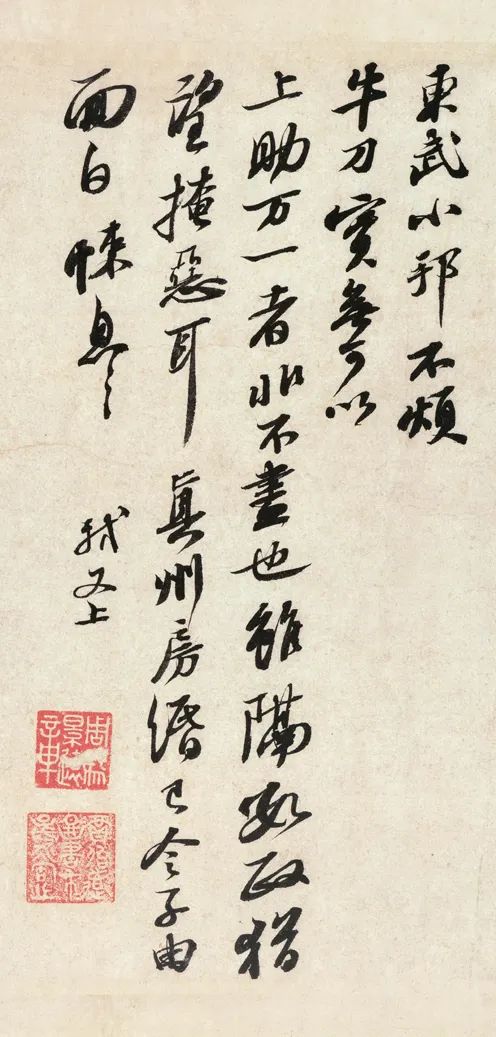 東武小邦不煩
牛刀實無可以
上助万一者非不盡也雖隔數政猶
望掩惡耳真州房緡已令子由
面白悚息〻
軾又上